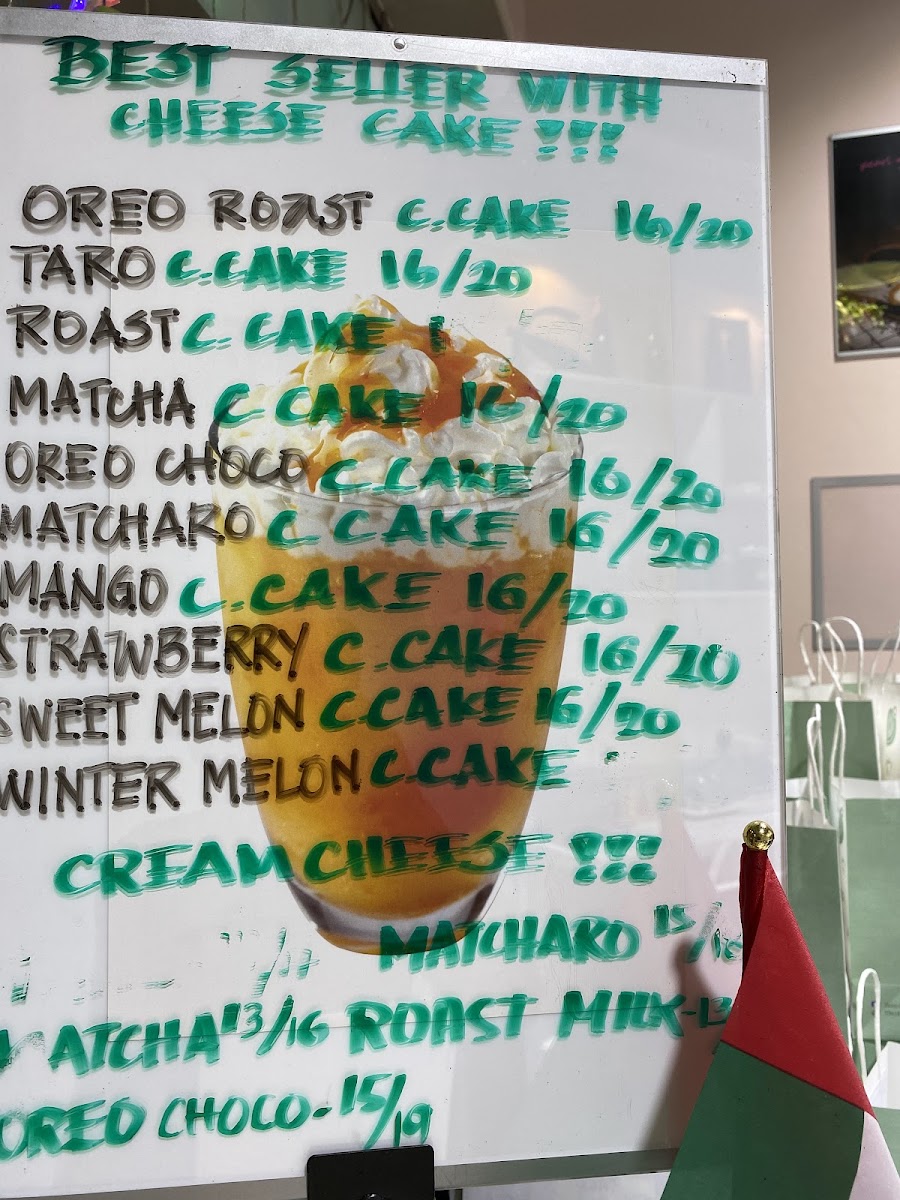 BEST SELLER WITH
CHEESE CAKE !!!
OREO ROAST C.CAKE 16/20
TARO C.CAKE 16/20
ROAST C. CAKE 1
MATCHA C CAKE 16/20
OREO CHOCO C.CAKE 16/20
MATCHARO C CAKE 16/20
MANGO C.CAKE 16/20
STRAWBERRY C.CAKE 16/20
SWEET MELON C.CAKE 16/20
WINTER MELON C.CAKE
CREAM CHEESE !!!
MATCHARO 15/
MATCHA 13/16 ROAST MILK-13
OREO CHOCO-15/19
pearl